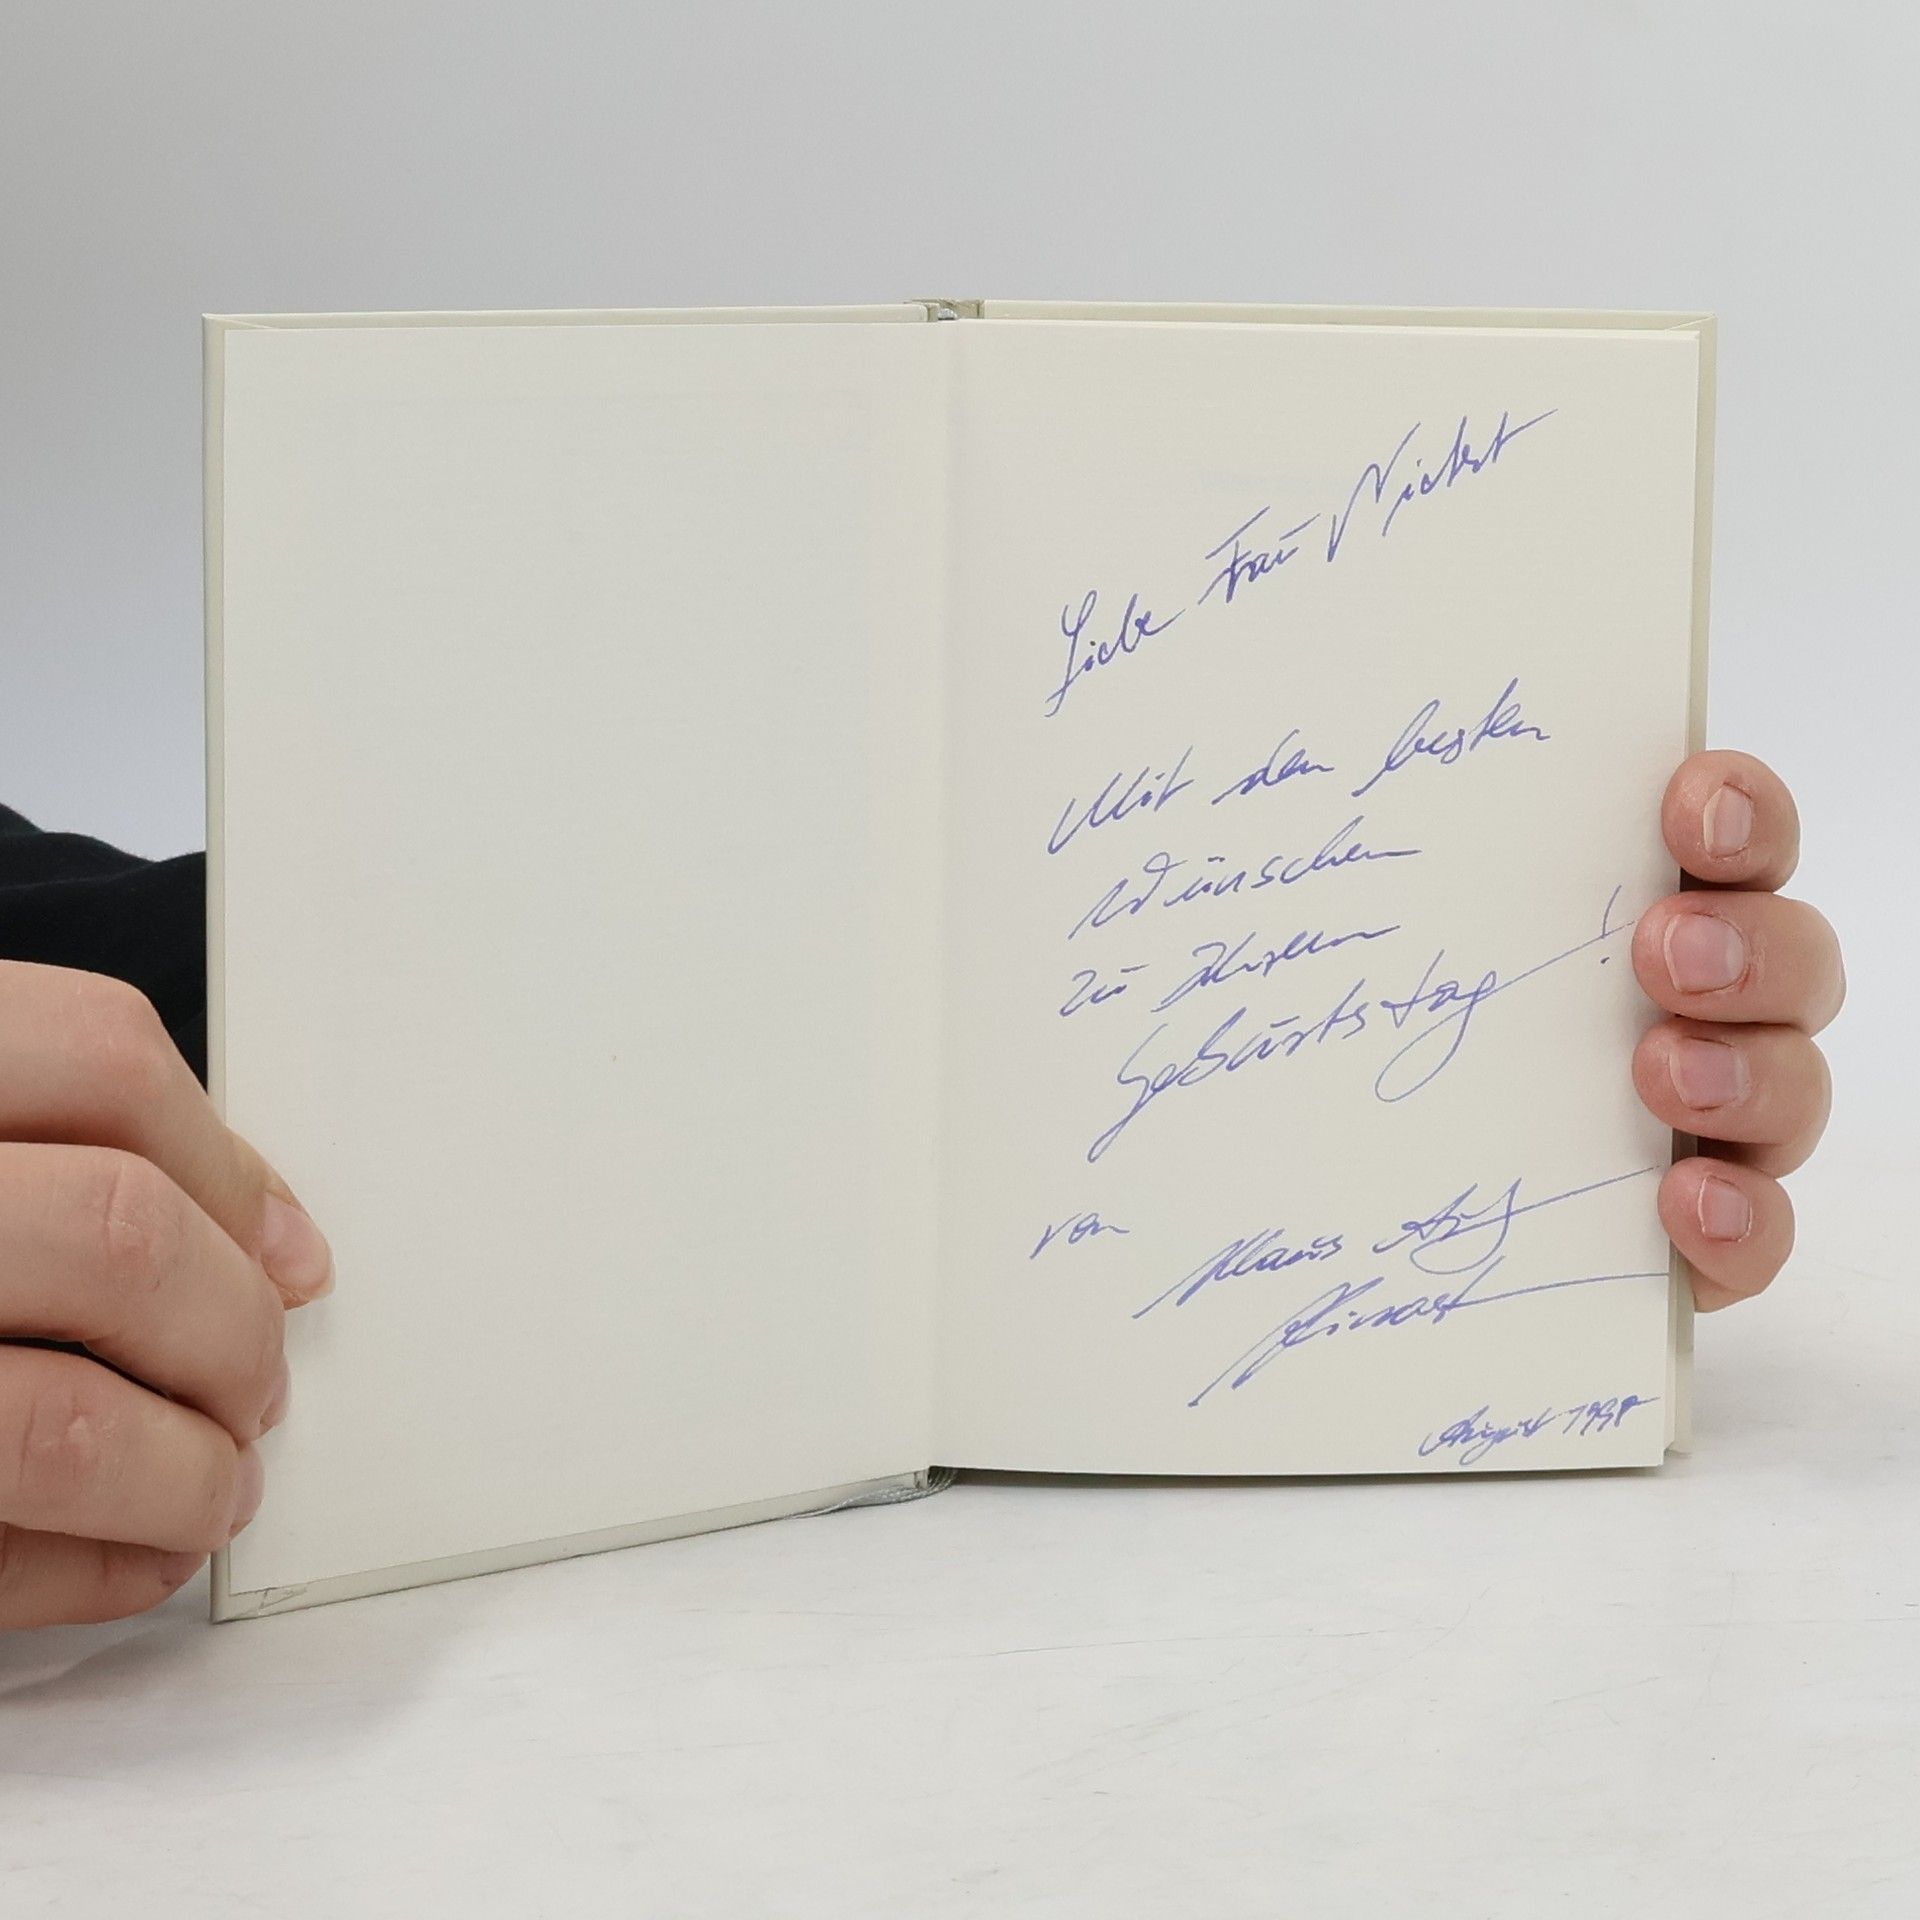 Liebe Frau
Mit den besten
Wünschen
zu Ihrem
Geburtstag!
von
Klaus
August 1998